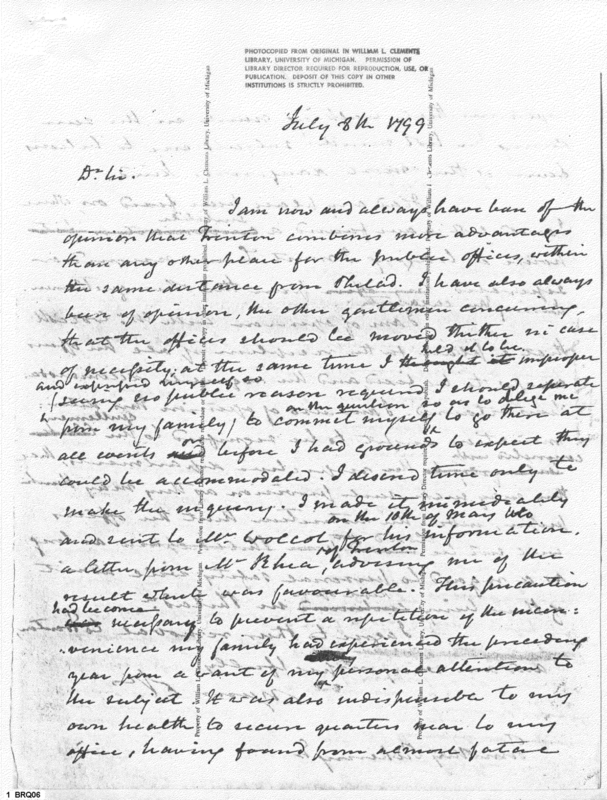 PHOTOCOPIED FROM ORIGINAL IN WILLIAM L. CLEMENTS
LIBRARY, UNIVERSITY OF MICHIGAN. PERMISSION OF
LIBRARY DIRECTOR REQUIRED FOR REPRODUCTION, USE, OR
PUBLICATION. DEPOSIT OF THIS COPY IN OTHER
INSTITUTIONS IS STRICTLY PROHIBITED.
July 8th 1799
Dr Sir.
I am now and always have been of the
opinion that Trenton combines more advantages
than any other place for the public offices, within
the same distance from Philad. I have also always
been of opinion, the other gentlemen concurring,
that the offices should be moved thither in case
of necessity; at the same time I thought it improper
held it to be
and expressed myself so
(seeing no public reason required I should separate
from my family) to commit myself to go there at
on the question so as to oblige me
all events or before I had grounds to expect they
could be accommodated. I desired time only to
make the inquiry. I made it immediately
and sent to Mr. Wolcot for his information,
on the 10th of May
a letter from Mr. Rhea, advising me of the
of Trenton
result which was favourable. This precaution
had become
necessary to prevent a repetition of the incon:
:venience my family had experienced the preceding
year from a want of my personal attention to
the subject. It was also indispensible to my
own health to secure quarters near to my
office, having found from almost fatal
Property of William L. Clements Library, University of Michigan
1 BRQ06